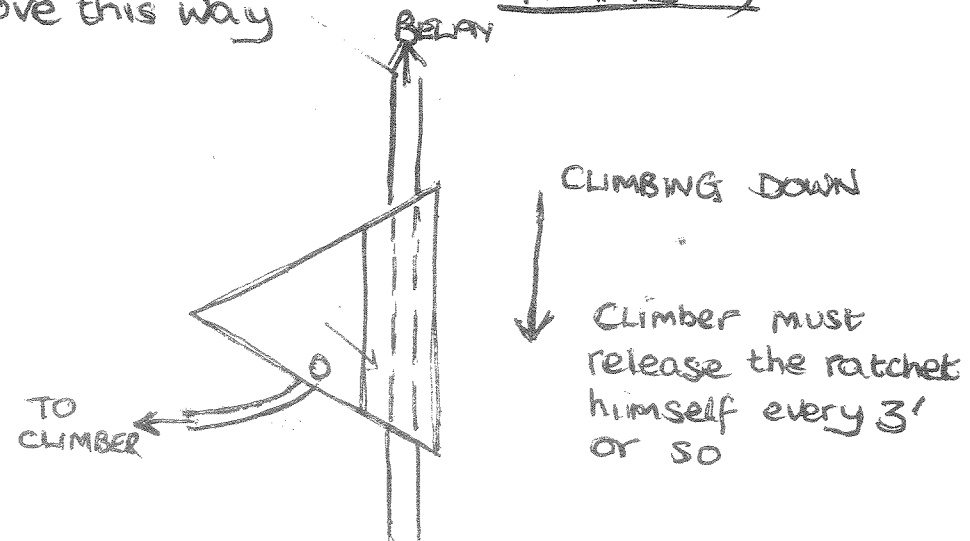 ove this way
BELAY
CLIMBING DOWN
Climber must
release the ratchet
himself every 3'
or so
TO
CLIMBER